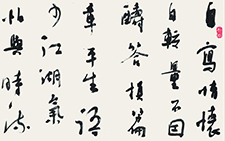 自寫情懷
自較量不因
醻答損篇
章平生語
少江湖氣
怕與時流